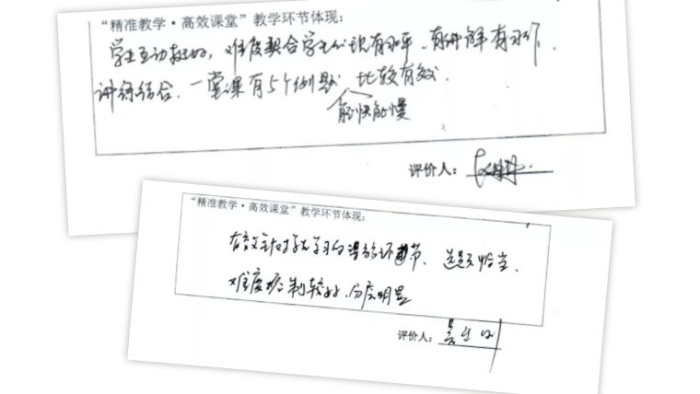 “精准教学·高效课堂”教学环节体现：
学生互动挺好，难度契合学生认知水平、有讲解有习作、
讲练结合．一堂课有5个例题 比较有效．
能快能慢
评价人：
“精准教学·高效课堂”教学环节体现：
有针对学生学习的课前环节．选题恰当．
难度控制较好、梯度明显
评价人：